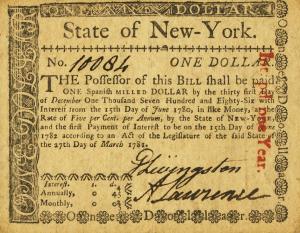 ONE DOLLAR.
State of New-York.
No. 10084 ONE DOLLAR.
THE Possessor of this BILL shall be paid
ONE Spanish MILLED DOLLAR by the thirty first day of
December One Thousand Seven Hundred and Eighty-Six with
Interest from the 15th Day of June 1780, in like Money, at the
Rate of Five per Cent. per Annum, by the State of NEW-YORK,
and the first Payment of Interest to be on the 15th Day of June
1782 according to an Act of the Legislature of the said State of
the 27th Day of March 1781.
Livingston
Interest. s. d. q.
Annually, 0 4
Monthly, 0 0
A Lawrence
One Dollar.
Year.